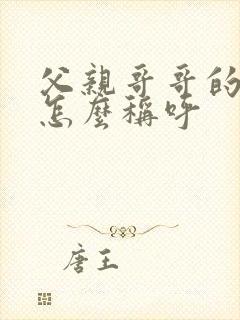 父親哥哥的
怎麼稱呼
唐王